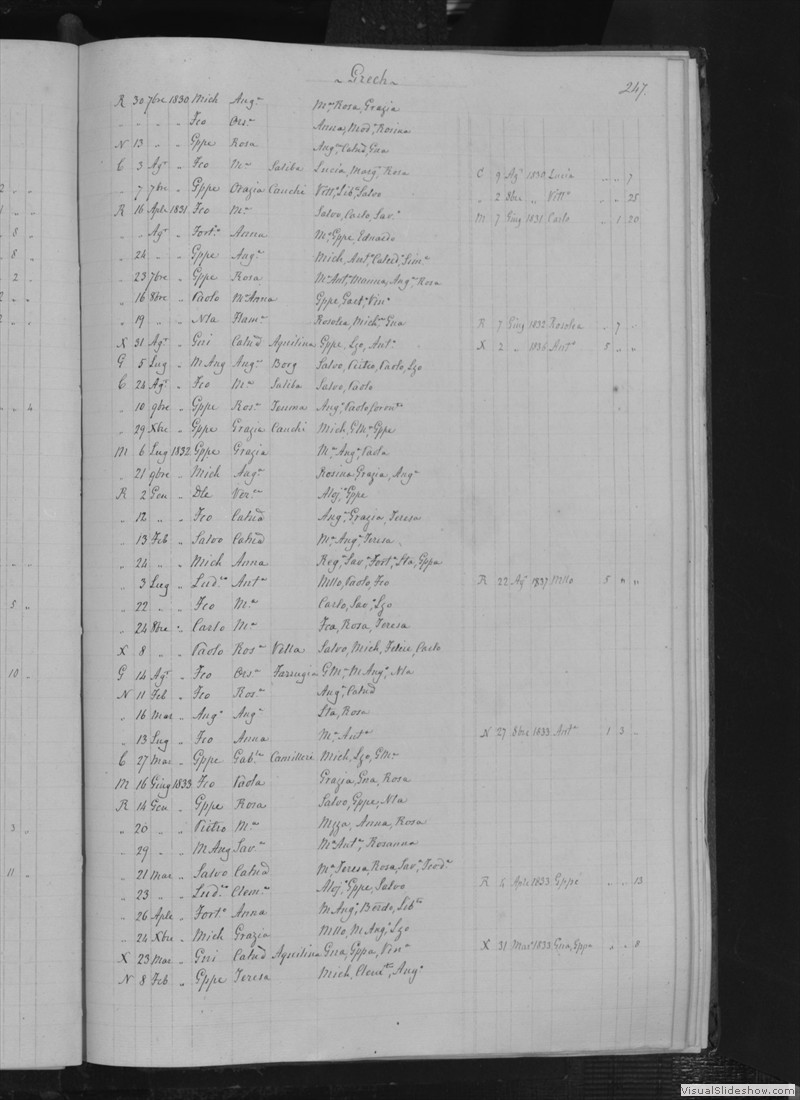 ~ Grech ~
247.
R 30 7bre 1830 Mich Ang.a M.a Rosa, Grazia
" " " " Fco Ors.a Anna, Mod.a Rosina
N 13 " " Gppe Rosa Ang.a Catud, Gna
C 3 Ag.o " Fco M.a Saliba Lucia, Marg.a Rosa C 9 Ag.o 1830 Lucia " " 7
" 7 7bre " Gppe Grazia Cauchi Vitt.a Lib.a Salvo " 2 8bre " Vitt.a " " 25
R 16 Aple 1831 Fco M.a Salvo, Carlo, Sav.a M 7 Giug 1831 Carlo " 1 20
" " Ag.o " Fort.o Anna M.a Gppe, Eduardo
" 24 " " Gppe Ang.a Mich, Ant.o Catud,
" 23 7bre " Gppe Rosa M.a Ant.a Manna, Ang.a Rosa
" 16 8bre " Paolo M.a Anna Gppe, Gaet.o Vin.o
" 19 " " Nla Flam.a Rosolea, Mich, Gna R 7 Giug 1832 Rosolea " 7 "
X 31 Ag.o " Gni Catud Aquilina Gppe, Lzo, Ant.o X 2 " 1836 Ant.o 5 " "
G 5 Lug " M Ang Ang.a Borg Salvo, Pietro, Paolo, Lzo
C 24 Ag.o " Fco M.a Saliba Salvo, Paolo
" 10 9bre " Gppe Ros.a Teuma Ang.o Paolo,
" 29 Xbre " Gppe Grazia Cauchi Mich, G M.a Gppe
M 6 Lug 1832 Gppe Grazia M.a Ang.a Paola
" 21 9bre " Mich Ang.a Rosina, Grazia, Ang.a
R 2 Gen " Dle Ver.a Aloj.o Gppe
" 12 " " Fco Catud Ang.a Grazia, Teresa
" 13 Feb " Salvo Catud M.a Ang.a Teresa
" 24 " " Mich Anna Reg.a Sav.a Fort.a Sta, Gppa
" 3 Lug " Lud.o Ant.a Mllo, Paolo, Fco R 22 Ag.o 1837 Mllo 5 " "
" 22 " " Fco M.a Carlo, Sav.o Lzo
" 24 8bre " Carlo M.a Fca, Rosa, Teresa
X 8 " " Paolo Ros.a Vella Salvo, Mich, Felice, Carlo
G 14 Ag.o " Fco Ors.a Farrugia G M.a M Ang.o Nla
N 11 Feb " Fco Ros.a Ang.a Catud
" 16 Mar " Ang.o Ang.a Sta, Rosa
" 13 Lug " Fco Anna M.a Ant.a N 27 8bre 1833 Ant.a 1 3 "
C 27 Mar " Gppe Gab.la Camilleri Mich, Lzo, G M.a
M 16 Giug 1833 Fco Paola Grazia, Gna, Rosa
R 14 Gen " Gppe Rosa Salvo, Gppe, Nla
" 20 " " Pietro M.a Mzza, Anna, Rosa
" 29 " " M Ang Sav.a M.a Ant.a Rosanna
" 21 Mar " Salvo Catud M.a Teresa, Rosa, Sav.a Teod.a
" 23 " " Lud.o Clem.a Aloj.o Gppe, Salvo R 4 Aple 1833 Gppe " " 13
" 26 Aple " Fort.o Anna M Ang.o
" 24 Xbre " Mich Grazia Mllo, M Ang.o Lzo
X 23 Mar " Gni Catud Aquilina Gna, Gppa, Vin.a X 31 Mar 1833 Gna, Gppa " " 8
N 8 Feb " Gppe Teresa Mich, Ang.o
8
8
2
4
5
10
3
11
VisualSlideshow.com